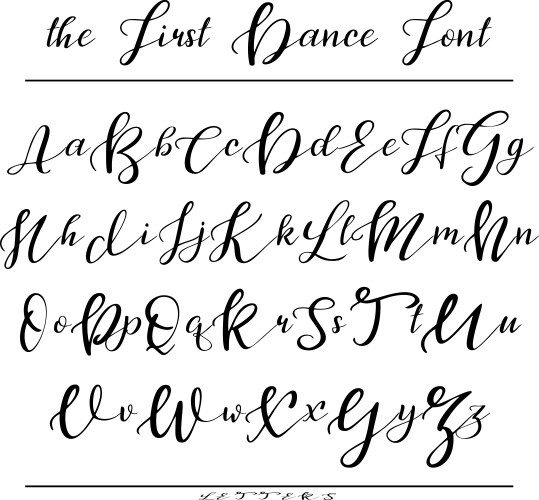 the First Dance Font
Aa Bb Cc Dd Ee Ff Gg
Hh Ii Jj Kk Ll Mm Nn
Oo Pp Qq Rr Ss Tt Uu
Vv Ww Xx Yy Zz
LETTERS